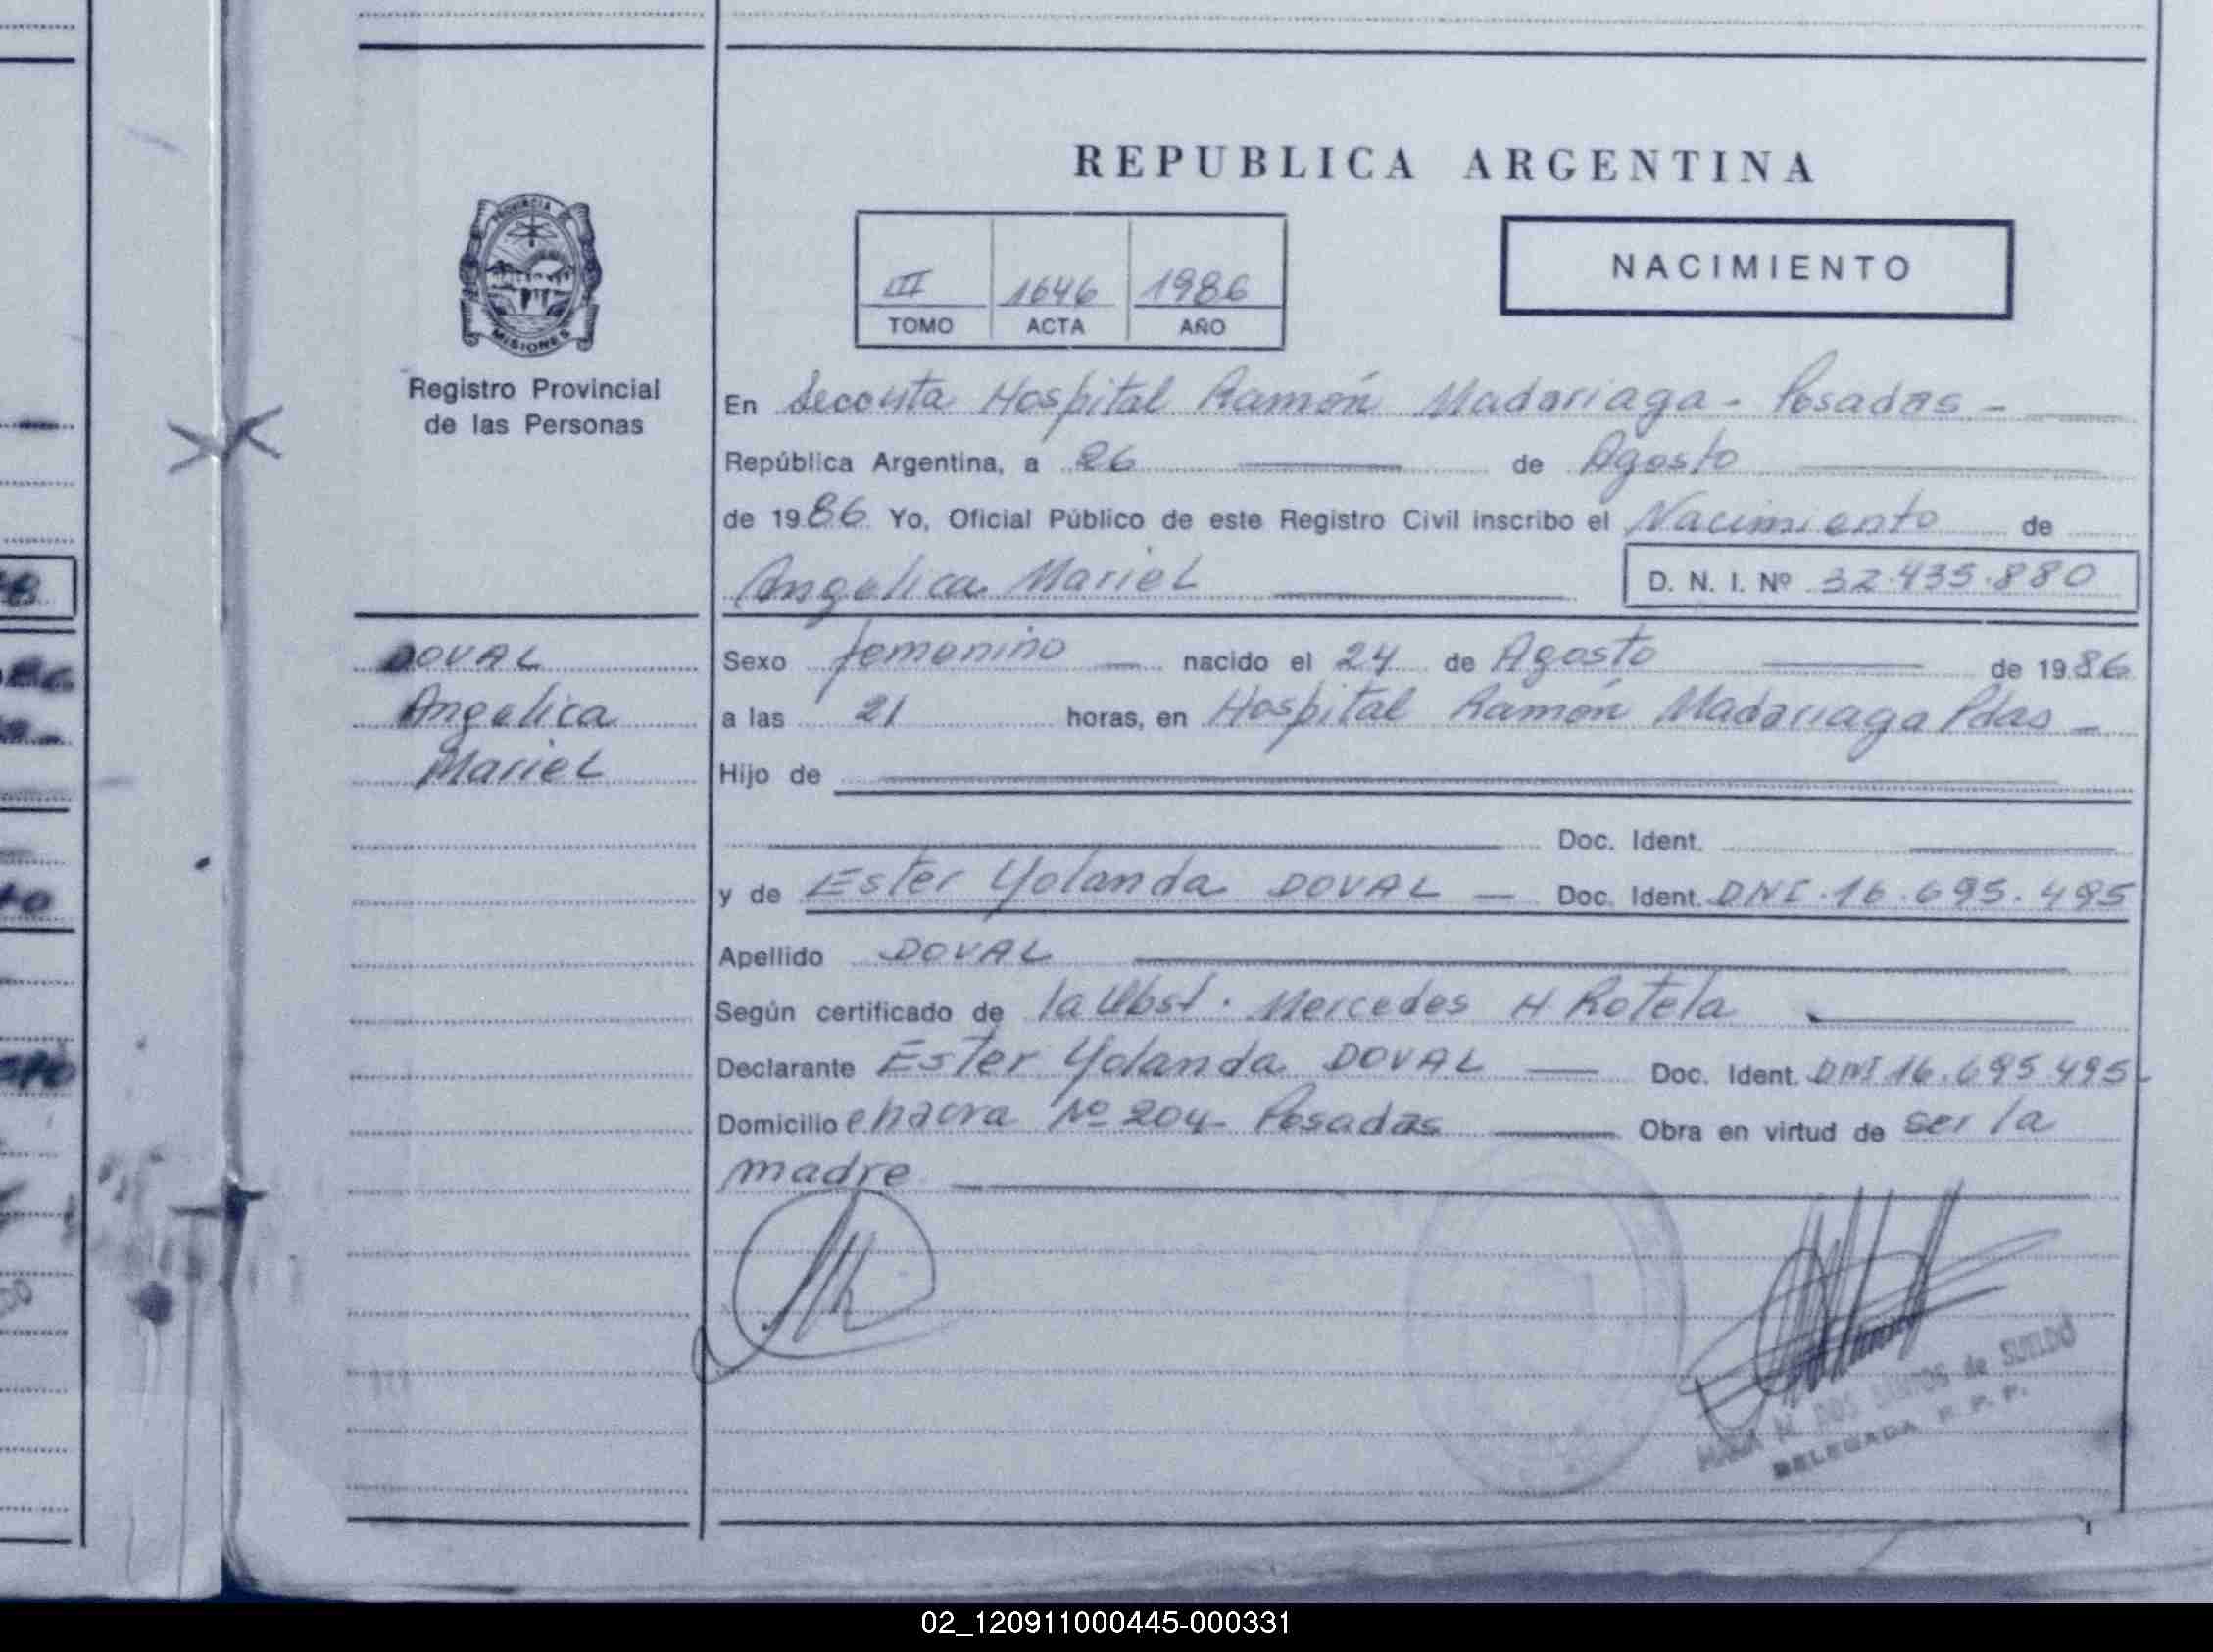 REPUBLICA ARGENTINA
PROVINCIA DE
MISIONES
Registro Provincial
de las Personas
III 1646 1986
TOMO ACTA AÑO
NACIMIENTO
En Hospital Ramón Madariaga - Posadas -
República Argentina, a 26 de Agosto
de 1986 Yo, Oficial Público de este Registro Civil inscribo el Nacimiento de
Angelica Mariel D. N. I. Nº 32.435.880
DOVAL
Angelica
Mariel
Sexo femenino nacido el 24 de Agosto de 1986
a las 21 horas, en Hospital Ramón Madariaga Pdas -
Hijo de
Doc. Ident.
y de Ester Yolanda DOVAL Doc. Ident. DNI. 16.695.495
Apellido DOVAL
Según certificado de la Obst. Mercedes H Rotela
Declarante Ester Yolanda DOVAL Doc. Ident. DNI 16.695.495
Domicilio chacra Nº 204 - Posadas Obra en virtud de ser la
madre
M. DOS SANTOS de SUELDO
DELEGADA R. P. P.
02_120911000445-000331